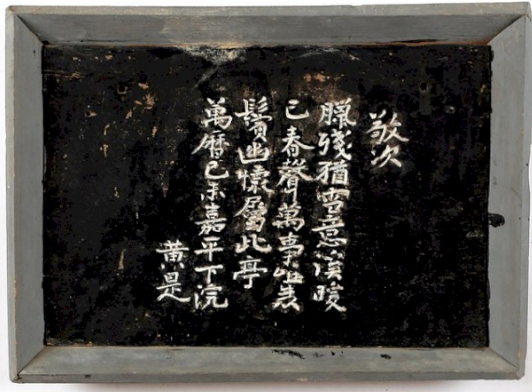 敬次
臘殘猶雪意溪暖
已春聲萬事唯衰
鬢幽懷屬此亭
萬曆己未嘉平下浣
黃是